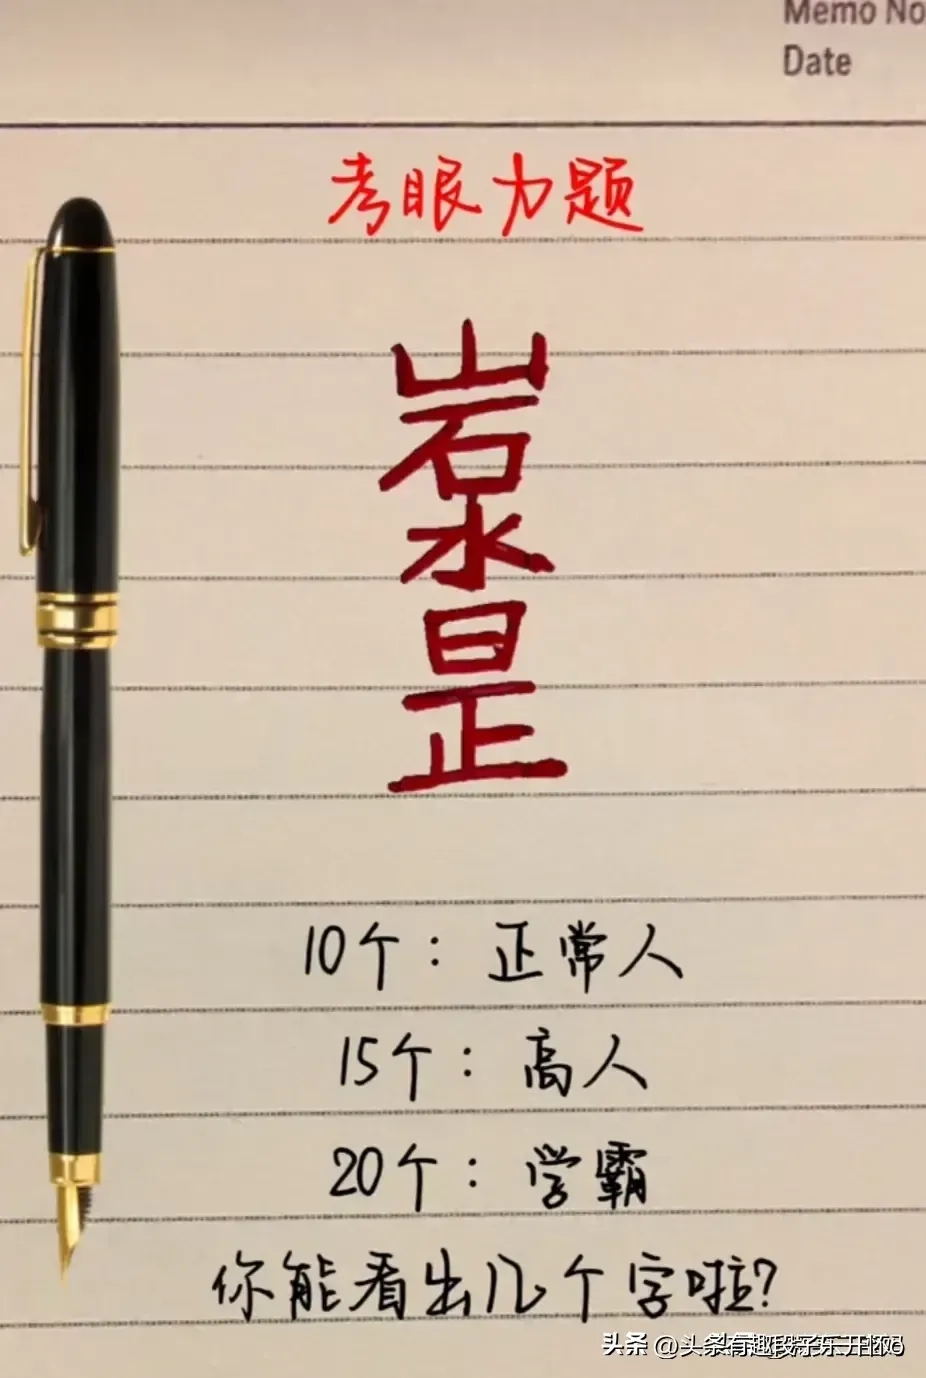 Memo No
Date
考眼力题
山
石
水
日
正
10个：正常人
15个：高人
20个：学霸
你能看出几个字啦？
头条 @头条有趣段子